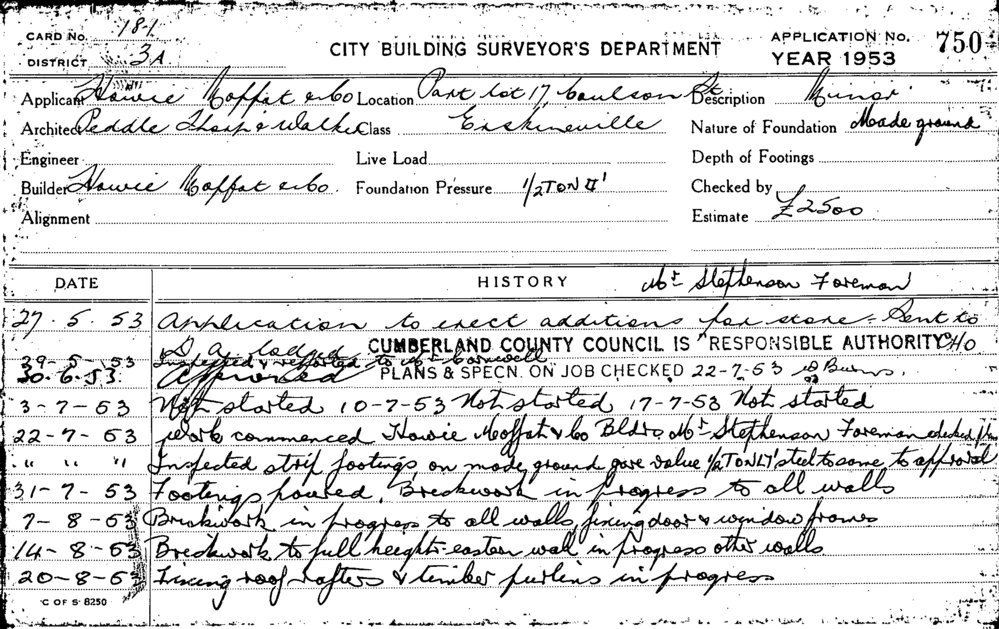 CARD No. 18-1
DISTRICT 3A
CITY BUILDING SURVEYOR'S DEPARTMENT
APPLICATION No. 750
YEAR 1953
Applicant Howie Moffat & Co Location Part Lot 17, Coulson St Description Minor
Architect Peddle Thorp & Walker Class Erskineville Nature of Foundation Made ground
Engineer Live Load Depth of Footings
Builder Howie Moffat & Co. Foundation Pressure 1/2 TON □' Checked by
Alignment Estimate £2500
DATE HISTORY Mr Stephenson Foreman
27.5.53 Application to erect additions for store - Sent to
CUMBERLAND COUNTY COUNCIL IS "RESPONSIBLE AUTHORITY" CHO
29-5-53 Inspected & reported to Mr Cornwell
30.6.53. Approved PLANS & SPECN. ON JOB CHECKED 22-7-53 Burns.
3-7-53 Not started 10-7-53 Not started 17-7-53 Not started
22-7-53 Work commenced Howie Moffat & Co Bldrs Mr Stephenson Foreman checked
" " " Inspected strip footings, on made ground gave value 1/2 TON □' steel to same to approval
31-7-53 Footings poured. Brickwork in progress to all walls
7-8-53 Brickwork in progress to all walls, fixing door & window frames
14-8-53 Brickwork to full height-eastern wall in progress other walls
20-8-53 Fixing roof rafters & timber purlins in progress
C OF S 8250